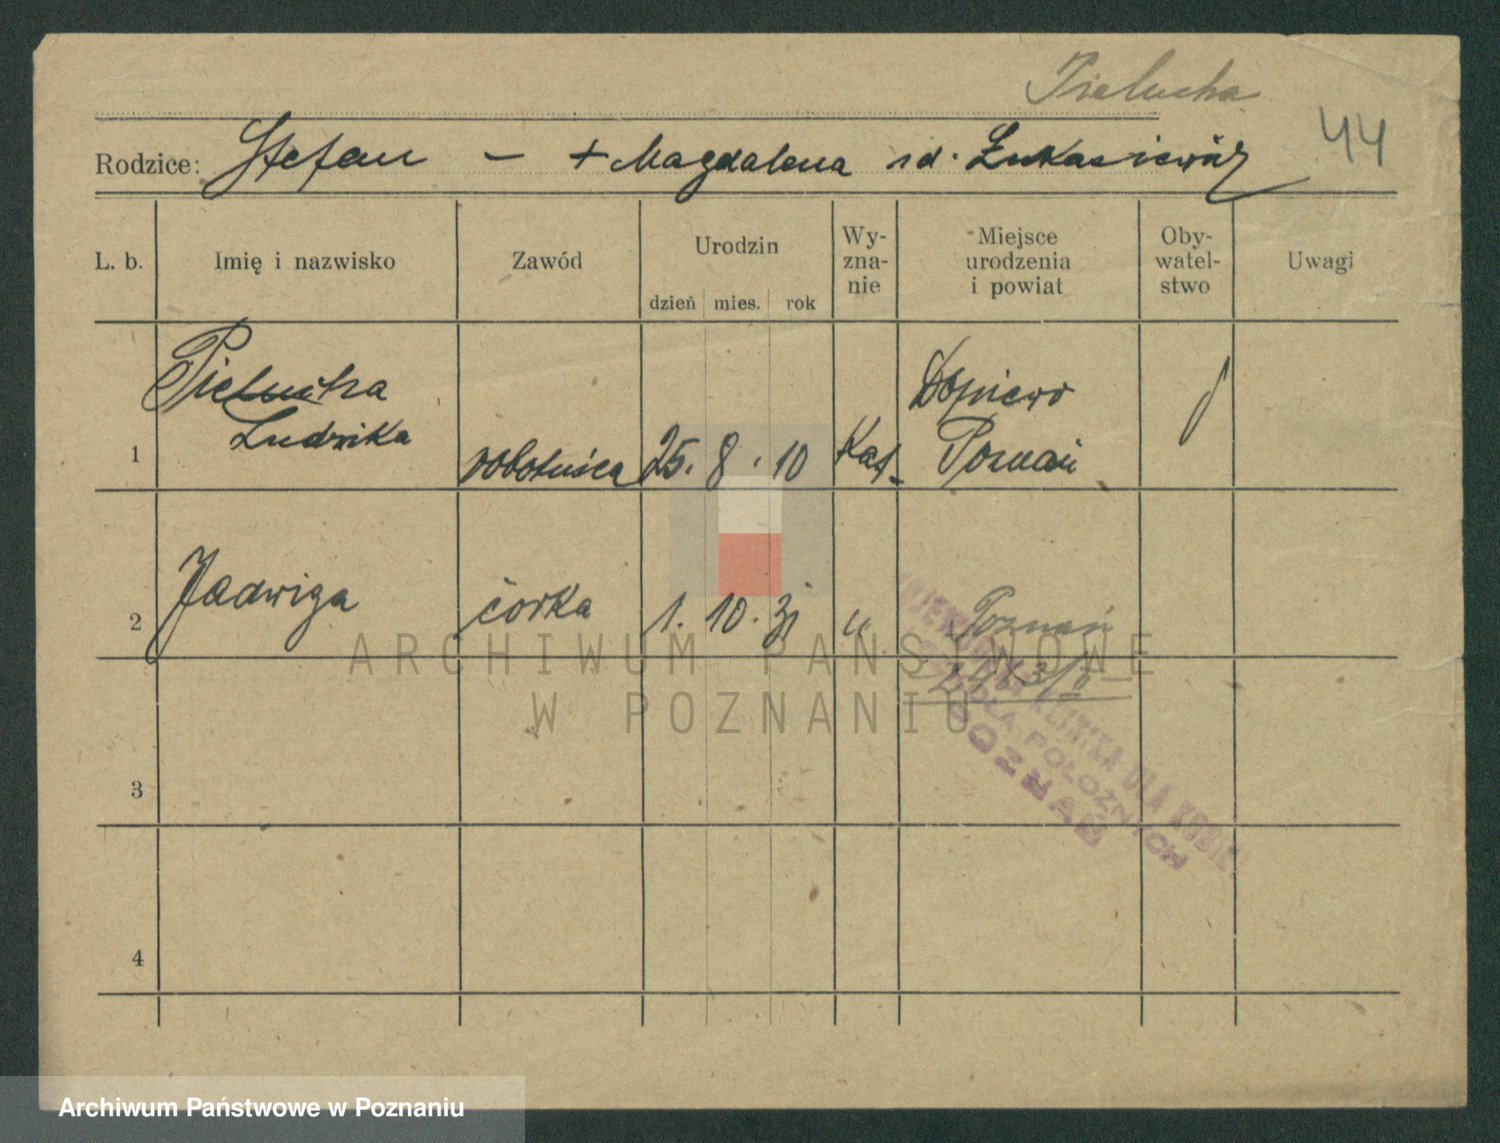 Pielucha
44
Rodzice: Stefan - + Magdalena Łukasiewicz
L. b. Imię i nazwisko Zawód Urodzin Wy- zna- nie Miejsce urodzenia i powiat Oby- watel- stwo Uwagi
dzień mies. rok
Pielucha Dopiewo
1 Ludwika robotnica 25. 8. 10 Kat. Poznań
2 Jadwiga córka 1. 10. 31 " Poznań
3
4
DLA KOBIET
SZKOŁA POŁOŻNYCH
POZNAŃ
ARCHIWUM PAŃSTWOWE
W POZNANIU
Archiwum Państwowe w Poznaniu